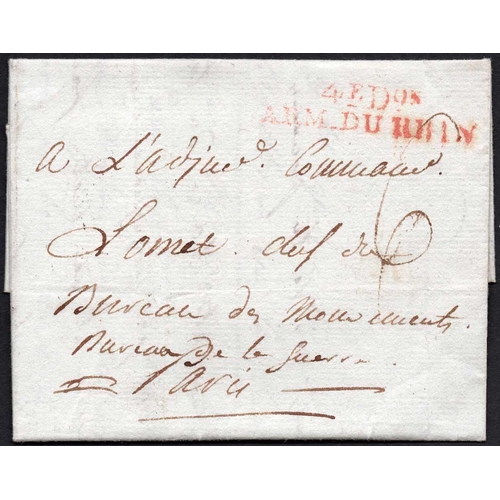 4E Dos
ARM. DU RHIN
a L'adju.d Command.
Lomet. chef du
Bureau des Mouvements.
Bureau De la Guerre
Paris